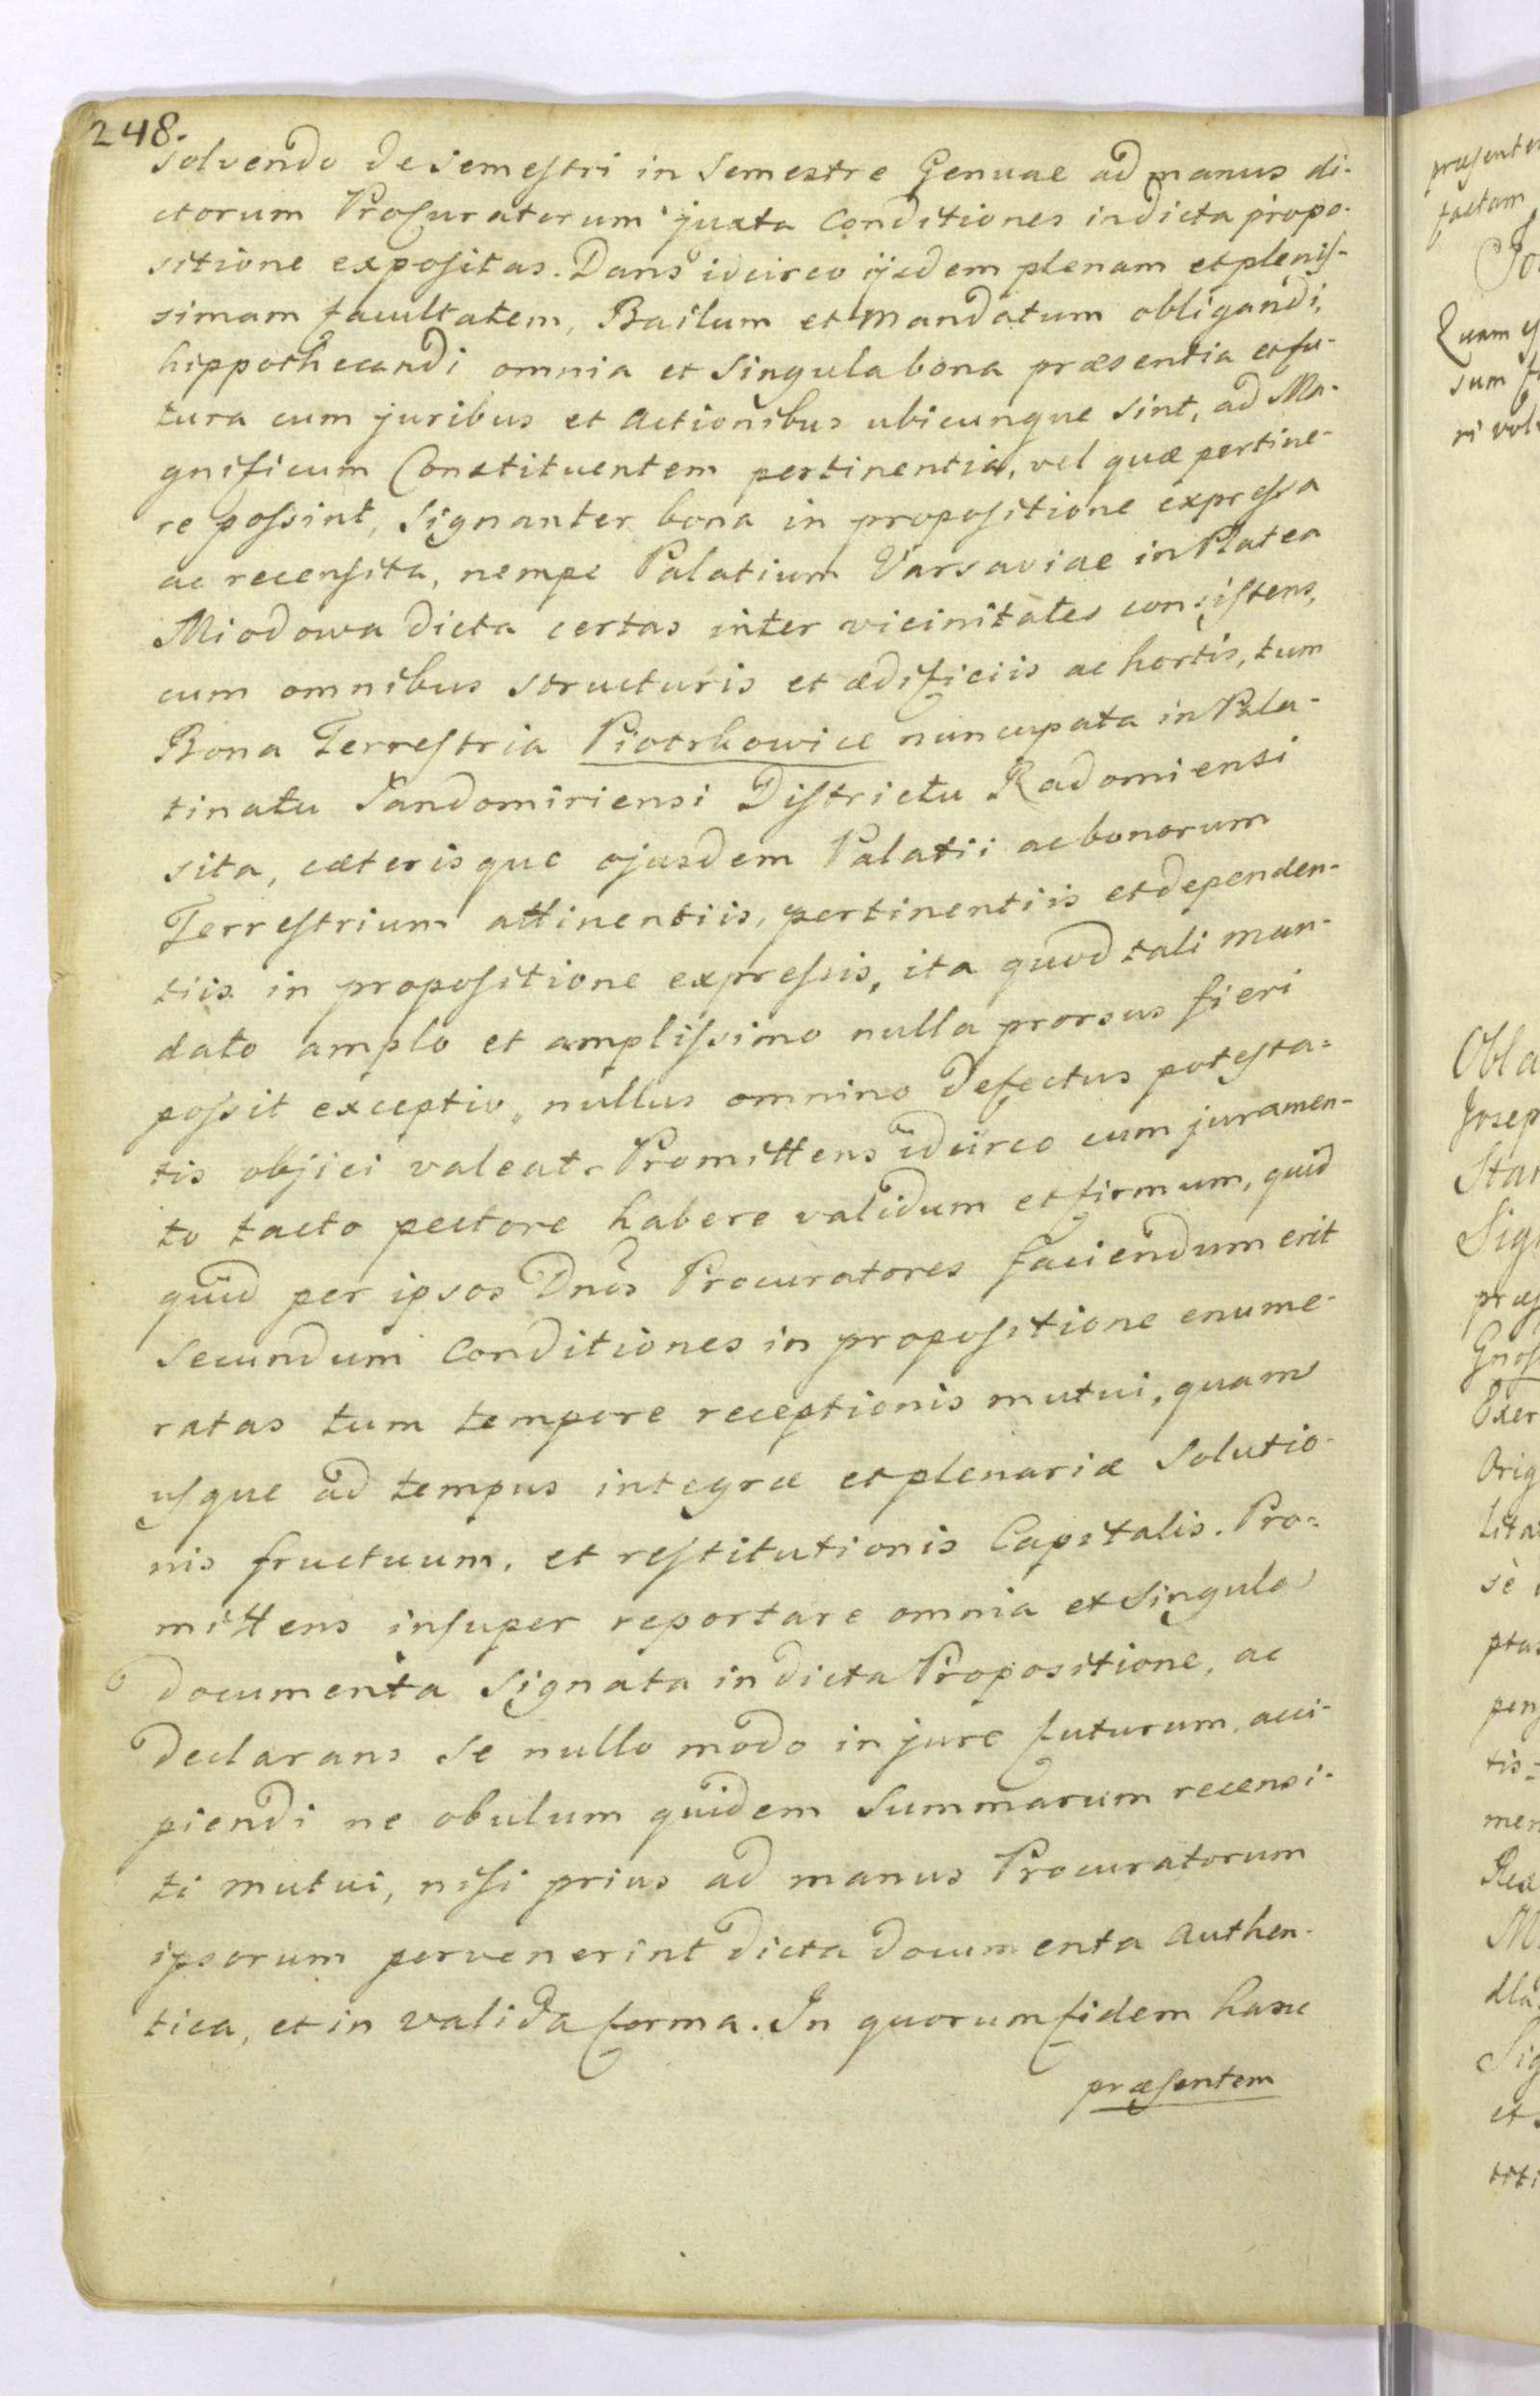 248.
solvendo de semestri in Semestre Genuae ad manus di-
ctorum Procuratorum juxta Conditiones in dicta propo-
sitione expositas. Dans idcirco ijsdem plenam et plenis-
simam facultatem, Bailum et Mandatum obligandi,
hippothecandi omnia et Singula bona præsentia et fu-
tura cum juribus et Actionibus ubicunque Sint, ad Ma-
gnificum Constituentem pertinentia, vel quæ pertine-
re possint, Signanter bona in propositione expressa
ac recensita, nempe Palatium Varsaviae in Platea
Miodowa dicta certas inter vicinitates consistens,
cum omnibus structuris et ædificiis ac hortis, tum
Bona Terrestria Piotrkowice nuncupata in Pala-
tinatu Sandomiriensi Districtu Radomiensi
sita, cæterisque ejusdem Palatii ac bonorum
Terrestrium attinentiis, pertinentiis et dependen-
tiis in propositione expressis, ita quod tali man-
dato amplo et amplissimo nulla prorsus fieri
possit exceptio, nullus omnino defectus potesta=
tis objici valeat. Promittens idcirco cum juramen-
to tacto pectore habere validum et firmum, quid
quid per ipsos Dnos Procuratores faciendum erit
Secundum Conditiones in propositione enume-
ratas tum tempore receptionis mutui, quam
usque ad tempus integræ et plenariæ Solutio-
nis fructuum, et restitutionis Capitalis. Pro=
mittens insuper reportare omnia et Singula
documenta Signata in dicta Propositione, ac
declarans Se nullo modo in jure futurum, acci-
piendi ne obulum quidem Summarum recensi-
ti mutui, nisi prius ad manus Procuratorum
ipsorum pervenerint dicta documenta Authen-
tica, et in valida forma. In quorum fidem hanc
præsentem
factam
Quam
sum
Obla
Josep
Sig
Orig
ptas
tis=